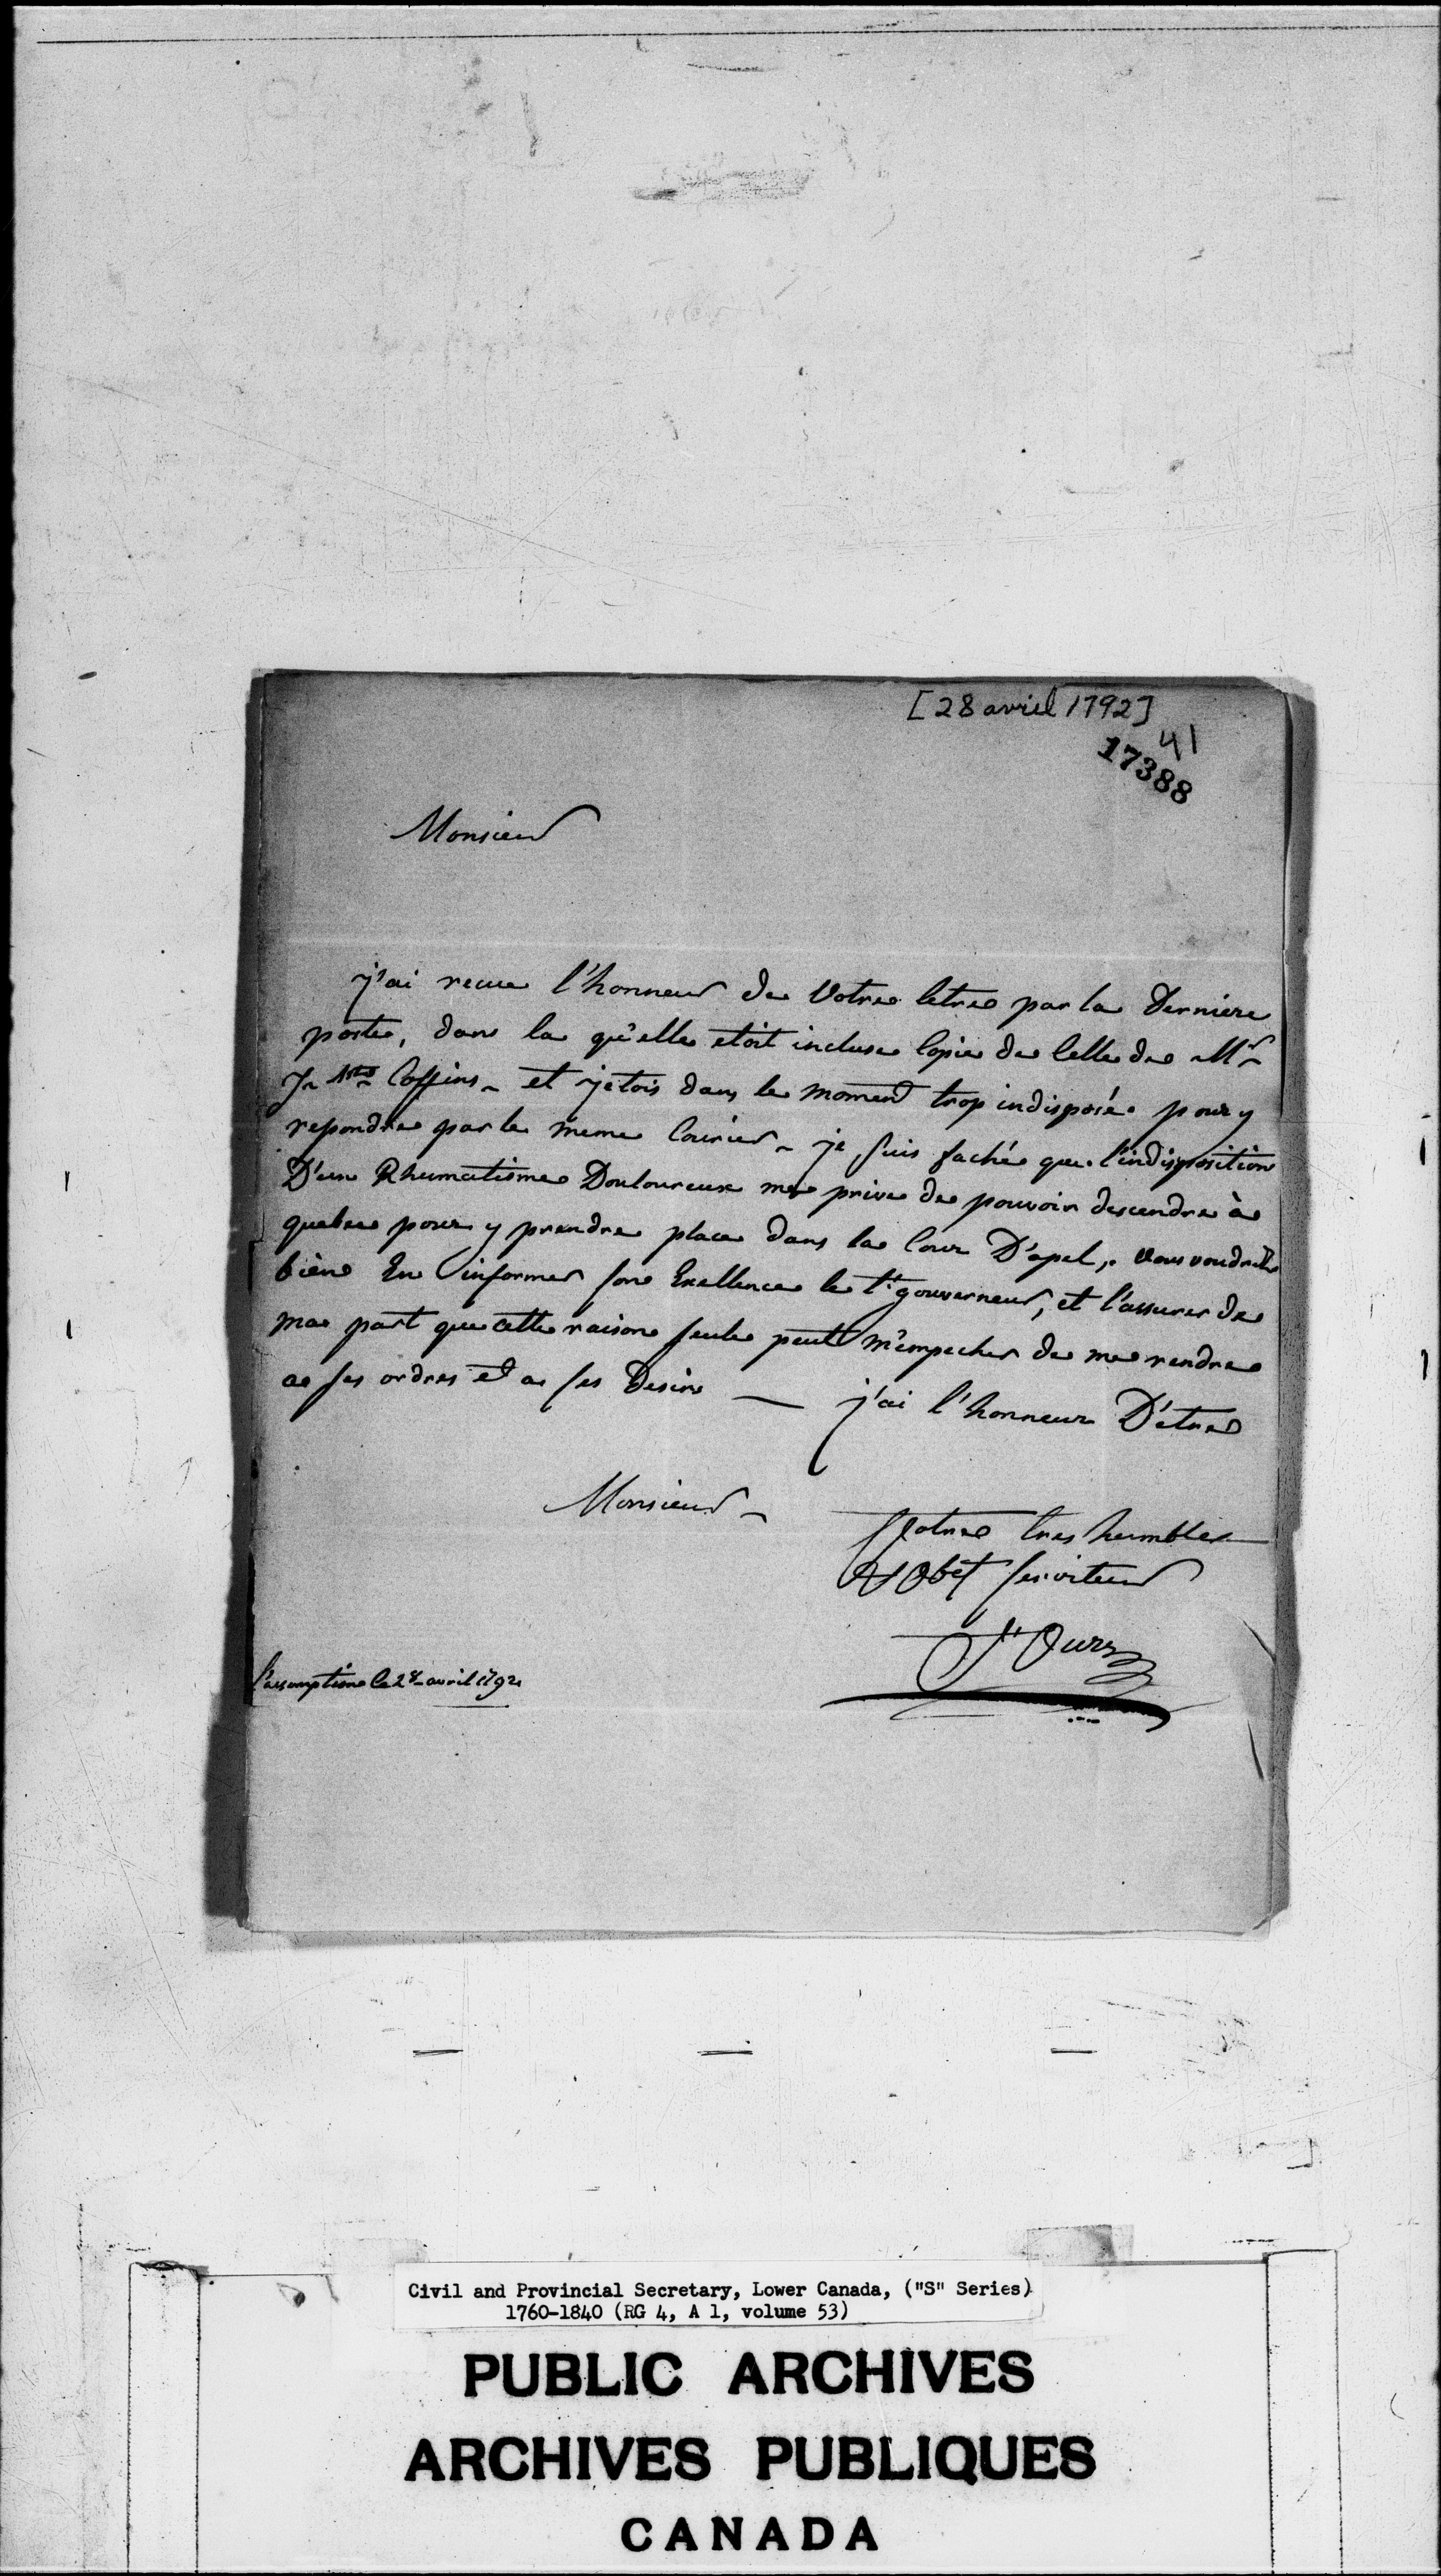 [28 avril 1792]
41
17388
Monsieur
j'ai recue l'honneur de Votre letre par la Derniere
poste, dans la qu'elle etoit incluse Copie de Celle de Mr
Coffins - et j'etois dans le moment trop indisposé pour y
repondre par le meme Courier - je suis faché que l'indisposition
D'un Rhumatisme Douloureux me prive de pouvoir descendre à
quebec pour y prendre place dans la Cour D'apel, vous voudrez
bien En informer son Exellence le Lt. gouverneur, et l'assurer de
ma part que cette raison seule peut m'empecher de me rendre
a ses ordres et a ses Desirs — j'ai l'honneur D'etre
Monsieur -
Votre tres humble
& Obet serviteur
St Ours
l'assumption le 28 - avril 1792
Civil and Provincial Secretary, Lower Canada, ("S" Series)
1760-1840 (RG 4, A 1, volume 53)
PUBLIC ARCHIVES
ARCHIVES PUBLIQUES
CANADA